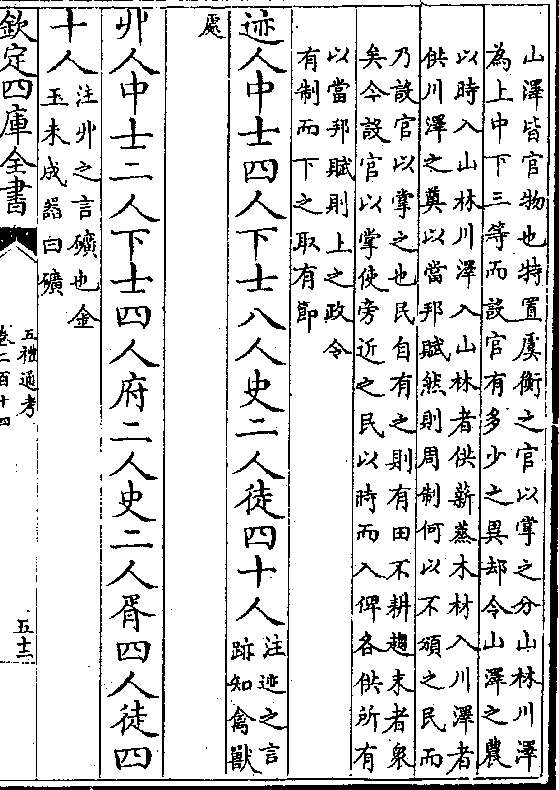 山澤皆官物也特置虞衡之官以掌之分山林川澤
為上中下三等而設官有多少之異却令山澤之農
以時入山林川澤入山林者供薪蒸木材入川澤者
供川澤之奠以當邦賦然則周制何以不頒之民而
乃設官以掌之也民自有之則有田不耕趨末者衆
矣今設官以掌使旁近之民以時而入俾各供所有
以當邦賦則上之政令
有制而下之取有節
迹人中士四人下士八人史二人徒四十人
注迹之言
跡知禽獸
處
丱人中士二人下士四人府二人史二人胥四人徒四
十人
注丱之言礦也金
玉未成器曰礦
欽定四庫全書
五禮通考
卷二百十四
五十三